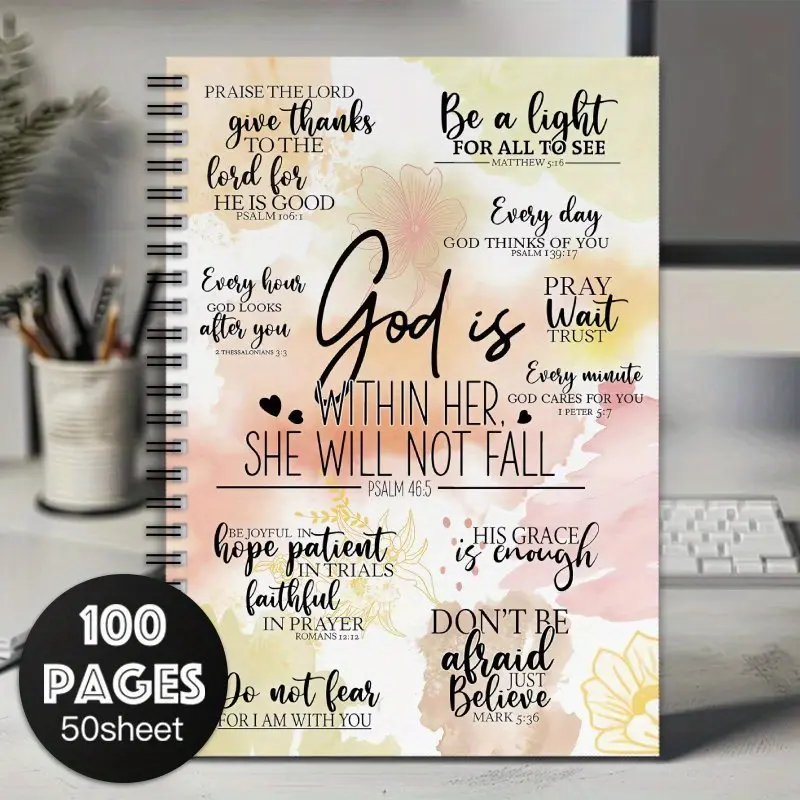 PRAISE THE LORD
give thanks
TO THE
lord for
HE IS GOOD
PSALM 106:1
Be a light
FOR ALL TO SEE
MATTHEW 5:16
Every day
GOD THINKS OF YOU
PSALM 139:17
Every hour
GOD LOOKS
after you
2 THESSALONIANS 3:3
God is
WITHIN HER,
SHE WILL NOT FALL
PSALM 46:5
PRAY
Wait
TRUST
Every minute
GOD CARES FOR YOU
1 PETER 5:7
BE JOYFUL IN
hope patient
IN TRIALS
faithful
IN PRAYER
ROMANS 12:12
HIS GRACE
is enough
DON'T BE
afraid
JUST
Believe
MARK 5:36
Do not fear
FOR I AM WITH YOU
100
PAGES
50sheet